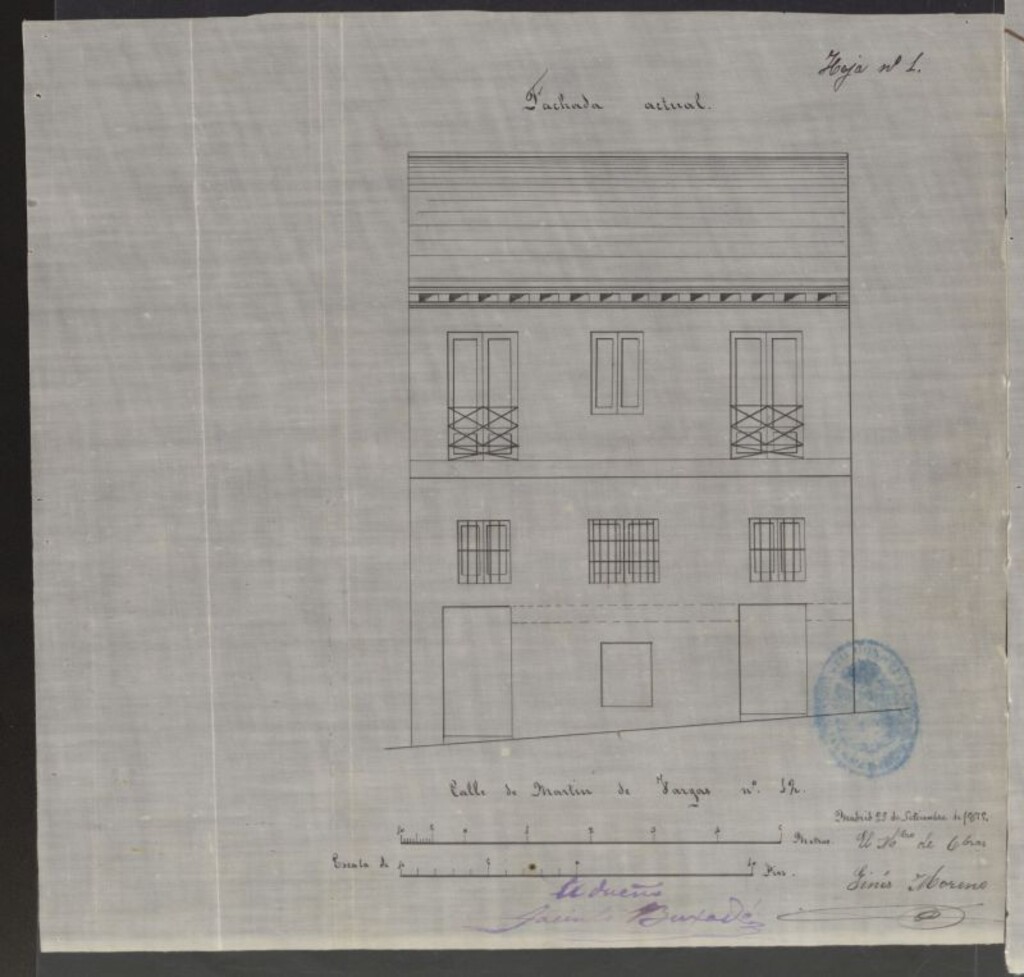 Hoja nº 1.
Fachada actual.
Calle de Martin de Vargas nº. 12.
Madrid 22 de Setiembre de
Metros
El Mtro de Obras
Escala de
Pies.
Ginés Moreno
El dueño